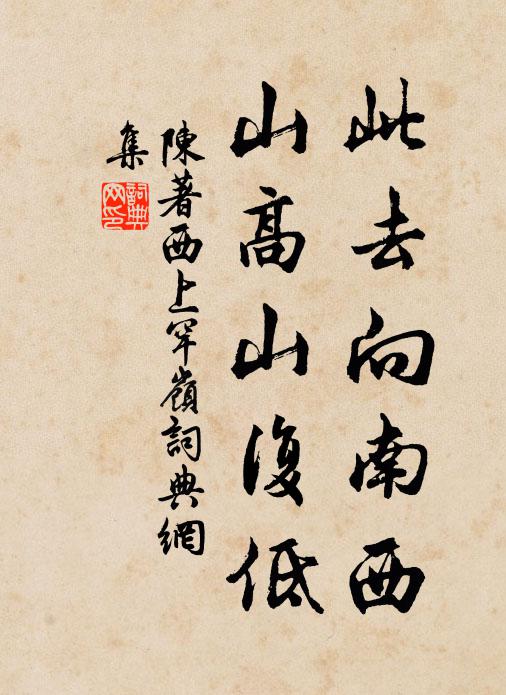 此去向南西
山高山復低
陳著西上罕嶺詞典網
集
詞典
网印